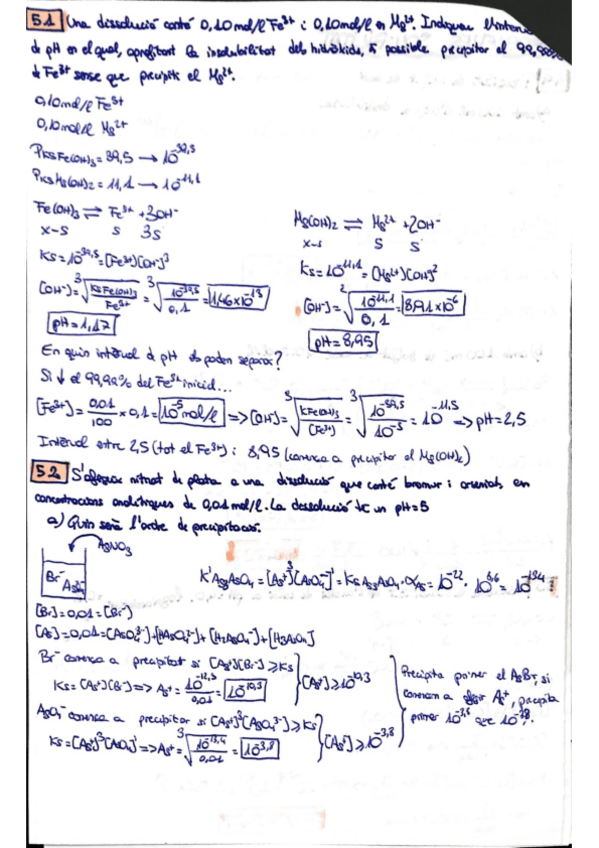 5.1 Una dissolució conté 0,10 mol/l Fe³⁺ i 0,10 mol/l en Mg²⁺. Indiqueu l'interval
de pH en el qual, aprofitant la insolubilitat dels hidròxids, és possible precipitar el 99,99%
de Fe³⁺ sense que precipiti el Mg²⁺.
0,10 mol/l Fe³⁺
0,10 mol/l Mg²⁺
PKs Fe(OH)₃ = 39,5 → 10^-39,5
PKs Mg(OH)₂ = 11,1 → 10^-11,1
Fe(OH)₃ ⇌ Fe³⁺ + 3OH⁻
x-s s 3s
Ks = 10^-39,5 = [Fe³⁺][OH⁻]³
[OH⁻] = ∛(Ks Fe(OH)₃ / Fe³⁺) = ∛(10^-39,5 / 0,1) = 1,46×10^-13
pH = 1,17
Mg(OH)₂ ⇌ Mg²⁺ + 2OH⁻
x-s s s
Ks = 10^-11,1 = [Mg²⁺][OH]²
[OH⁻] = ²√(10^-11,1 / 0,1) = 8,91×10^-6
pH = 8,95
En quin interval de pH es poden separar?
Si ↓ el 99,99% del Fe³⁺ inicial...
[Fe³⁺] = 0,01/100 × 0,1 = 10^-5 mol/l => [OH⁻] = ∛(KFe(OH)₃ / [Fe³⁺]) = ∛(10^-39,5 / 10^-5) = 10^-11,5 => pH = 2,5
Interval entre 2,5 (tot el Fe³⁺) i 8,95 (comença a precipitar el Mg(OH)₂)
5.2 S'afegeix nitrat de plata a una dissolució que conté bromur i arseniat, en
concentracions analítiques de 0,01 mol/l. La dissolució té un pH=5
a) Quin serà l'ordre de precipitació.
AgNO₃
Br⁻
K'Ag₃AsO₄ = [Ag⁺]³[AsO₄³⁻]' = Ks Ag₃AsO₄ · αAs = 10^-22 · 10^8,6 = 10^-13,4
[Br] = 0,01 = [Br⁻]
[As] = 0,01 = [AsO₄³⁻] + [HAsO₄²⁻] + [H₂AsO₄⁻] + [H₃AsO₄]
Br⁻ comença a precipitat si [Ag⁺][Br⁻] ≥ Ks
Ks = [Ag⁺][Br⁻] => Ag⁺ = 10^-12,3 / 0,01 = 10^-10,3
[Ag⁺] ≥ 10^-10,3
AsO₄⁻ comença a precipitar si [Ag⁺]³[AsO₄³⁻] ≥ Ks
Ks = [Ag⁺]³[AsO₄]' => Ag⁺ = ∛(10^-13,4 / 0,01) = 10^-3,8
[Ag⁺] ≥ 10^-3,8
Precipita primer el AgBr, si
comencem a afegir Ag⁺, precipita
primer que